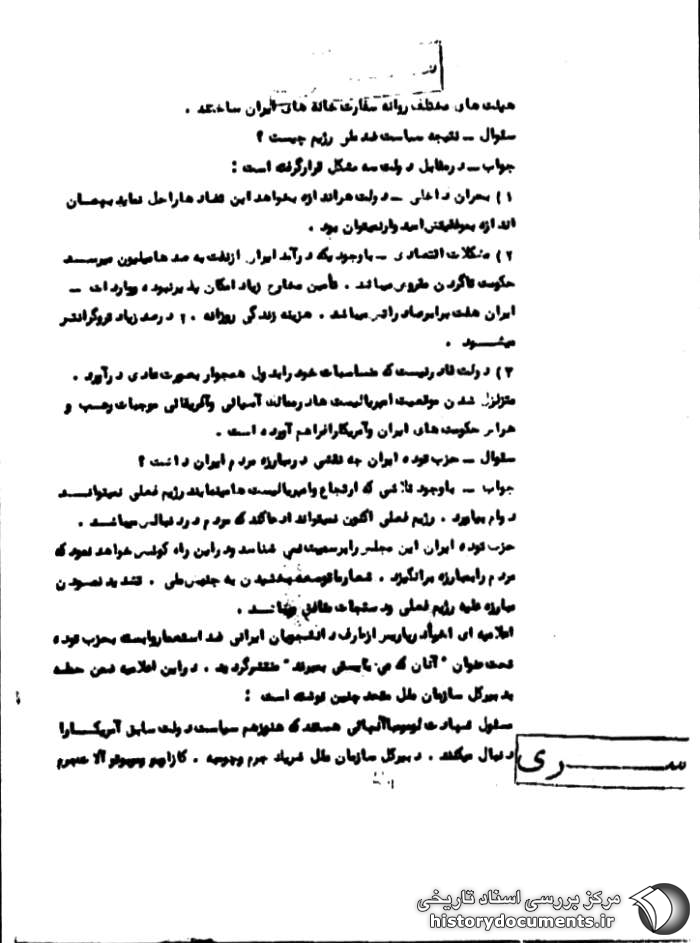 هیئت های مختلف روانه سفارت خانه های ایران ساختند .
سئوال ــ نتیجه سیاست ضد ملی رژیم چیست ؟
جواب ــ در مقابل دولت سه مشکل قرار گرفته است :
۱) بحران داخلی ــ دولت هر اندازه بخواهد این تضاد ها را حل نماید بهمان
اندازه بموفقیتش امیدوار نمیتوان بود .
۲) مشکلات اقتصادی ــ با وجودیکه درآمد ایران از نفت به صدها میلیون میرسد
حکومت تاگردن مقروض میباشد . تأمین مخارج زیاد امکان پذیر نبوده و واردات ــ
ایران هفت برابر صادراتش میباشد . هزینه زندگی روزانه ۲۰ درصد زیاد تر و گرانتر
میشود .
۳) دولت قادر نیست که مناسبات خود را با دول همجوار بصورت عادی درآورد .
متزلزل شدن موقعیت امپریالیست ها در ممالک آسیائی و آفریقائی موجبات رعب و
هراس حکومت های ایران و آمریکا را فراهم آورده است .
سئوال ــ حزب توده ایران چه نقشی در مبارزه مردم ایران داشت ؟
جواب ــ با وجود تلاشی که ارتجاع و امپریالیست ها مینمایند رژیم فعلی نمیتواند
دوام بیاورد . رژیم فعلی اکنون نمیتواند ادعا کند که مردم در دنبالش میباشند .
حزب توده ایران این مجلس را برسمیت نمی شناسد و در این راه کوشش خواهد نمود که
مردم را بمبارزه برانگیزد . شعار ما توسعه بخشیدن به جنبش ملی . تشدید نمودن
مبارزه علیه رژیم فعلی و دستجات منافق میباشد .
اعلامیه ای اخیراً در پاریس از طرف دانشجویان ایرانی ضد استعمار وابسته بحزب توده
تحت عنوان "آنان که می بایستی بمیرند" منتشر گردید . در این اعلامیه ضمن حمله
بدبیرکل سازمان ملل متحد چنین نوشته است :
دنبال میکنند . دبیرکل سازمان ملل شریک جرم
سری
مرکز بررسی اسناد تاریخی
historydocuments.ir